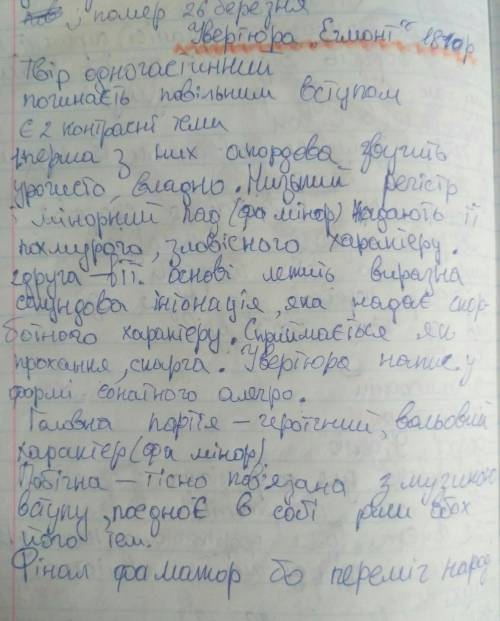 ; помер 26 березня
Увертюра "Егмонт" 1810р
Твір одночастинний
починаєть повільним вступом
Є 2 контрасні теми
1перша з них акордова звучить
урочисто, владно. Низький регістр
і мінорний лад (фа мінор) надають її
похмурого, зловісного характеру.
2друга – її основі лежить виразна
секундова інтонація, яка надає скор-
ботного характеру. Сприймається як
прохання, скарга. Увертюра напис. у
формі сонатного алегро.
Головна партія – героїчний, вольовий
характер (фа мінор)
Побічна – тісно пов'язана з музикою
вступу, поєднює в собі обох
його тем.
Фінал фа мажор бо переміг народ